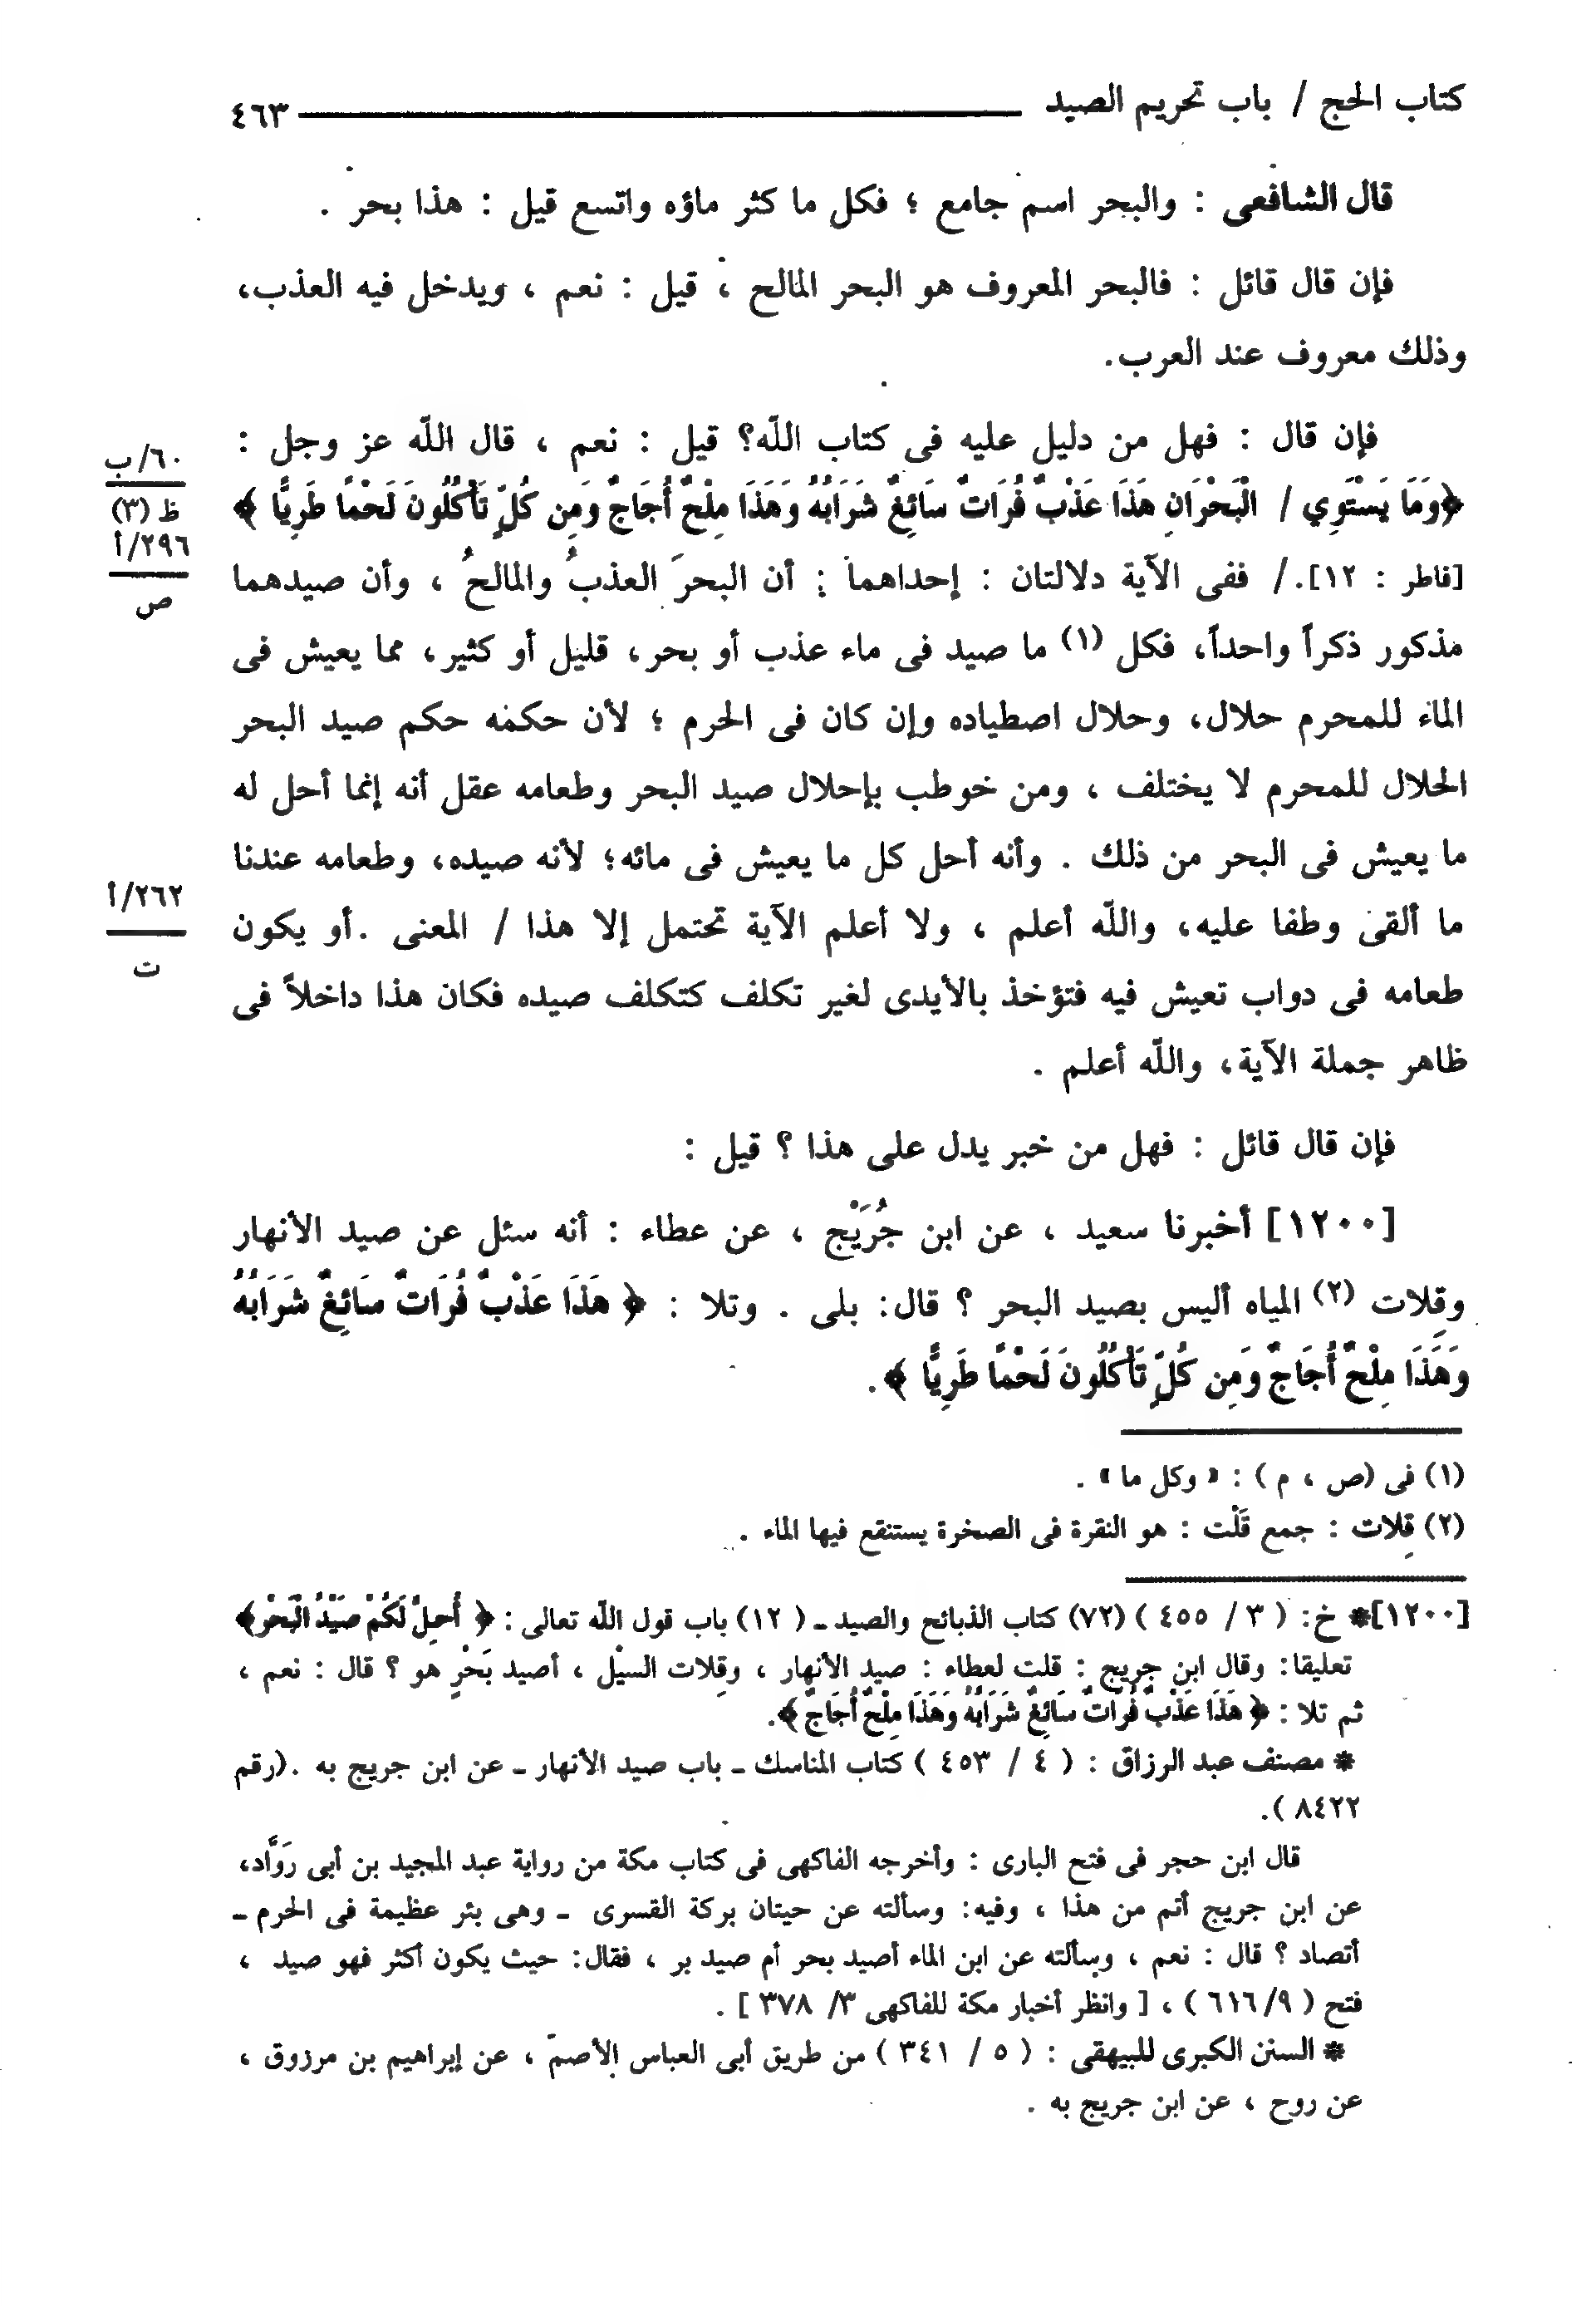 كتاب الحج / باب تحريم الصيد ٤٦٣
قال الشافعى : والبحر اسم جامع ؛ فكل ما كثر ماؤه واتسع قيل : هذا بحر .
فإن قال قائل : فالبحر المعروف هو البحر المالح ، قيل : نعم ، ويدخل فيه العذب،
وذلك معروف عند العرب.
فإن قال : فهل من دليل عليه فى كتاب اللّه؟ قيل : نعم ، قال اللّه عز وجل :
﴿وَمَا يَسْتَوِي / الْبَحْرَانِ هَذَا عَذْبٌ فُرَاتٌ سَائِغٌ شَرَابُهُ وَهَذَا مِلْحٌ أُجَاجٌ وَمِن كُلٍّ تَأْكُلُونَ لَحْمًا طَرِيًّا ﴾
[فاطر : ١٢]./ ففى الآية دلالتان : إحداهما : أن البحرَ العذبُ والمالحُ ، وأن صيدهما
مذكور ذكراً واحداً، فكل (١) ما صيد فى ماء عذب أو بحر، قليل أو كثير، مما يعيش فى
الماء للمحرم حلال، وحلال اصطياده وإن كان فى الحرم ؛ لأن حكمه حكم صيد البحر
الحلال للمحرم لا يختلف ، ومن خوطب بإحلال صيد البحر وطعامه عقل أنه إنما أحل له
ما يعيش فى البحر من ذلك . وأنه أحل كل ما يعيش فى مائه؛ لأنه صيده، وطعامه عندنا
ما ألقى وطفا عليه، واللّه أعلم ، ولا أعلم الآية تحتمل إلا هذا / المعنى .أو يكون
طعامه فى دواب تعيش فيه فتؤخذ بالأيدى لغير تكلف كتكلف صيده فكان هذا داخلاً فى
ظاهر جملة الآية، واللّه أعلم .
فإن قال قائل : فهل من خبر يدل على هذا ؟ قيل :
[١٢٠٠] أخبرنا سعيد ، عن ابن جُرَيْج ، عن عطاء : أنه سئل عن صيد الأنهار
وقِلات (٢) المياه أليس بصيد البحر ؟ قال: بلى . وتلا : ﴿ هَذَا عَذْبٌ فُرَاتٌ سَائِغٌ شَرَابُهُ
وَهَذَا مِلْحٌ أُجَاجٌ وَمِن كُلٍّ تَأْكُلُونَ لَحْمًا طَرِيًّا ﴾.
٦٠/ب
ظ (٣)
٢٩٦/أ
ص
٢٦٢/أ
ت
(١) فى (ص ، م ) : « وكل ما » .
(٢) قِلات : جمع قَلْت : هو النقرة فى الصخرة يستنقع فيها الماء .
[١٢٠٠]* خ: ( ٣ / ٤٥٥ ) (٧٢) كتاب الذبائح والصيد ـ ( ١٢) باب قول اللّه تعالى : ﴿ أُحِلَّ لَكُمْ صَيْدُ الْبَحْرِ﴾
تعليقا: وقال ابن جريج : قلت لعطاء : صيد الأنهار ، وقِلات السيْل ، أصيد بَحْرٍ هو ؟ قال : نعم ،
ثم تلا : ﴿ هَذَا عَذْبٌ فُرَاتٌ سَائِغٌ شَرَابُهُ وَهَذَا مِلْحٌ أُجَاجٌ ﴾.
* مصنف عبد الرزاق : ( ٤ / ٤٥٣ ) كتاب المناسك ـ باب صيد الأنهار ـ عن ابن جريج به .(رقم
٨٤٢٢ ).
قال ابن حجر فى فتح البارى : وأخرجه الفاكهى فى كتاب مكة من رواية عبد المجيد بن أبى رَوَّاد،
عن ابن جريج أتم من هذا ، وفيه: وسألته عن حيتان بركة القسرى ـ وهى بئر عظيمة فى الحرم ـ
أتصاد ؟ قال : نعم ، وسألته عن ابن الماء أصيد بحر أم صيد بر ، فقال: حيث يكون أكثر فهو صيد ،
فتح ( ٩/ ٦١٦ ) ، [ وانظر أخبار مكة للفاكهى ٣/ ٣٧٨ ] .
* السنن الكبرى للبيهقى : ( ٥ / ٣٤١ ) من طريق أبى العباس الأصمّ ، عن إبراهيم بن مرزوق ،
عن روح ، عن ابن جريج به .